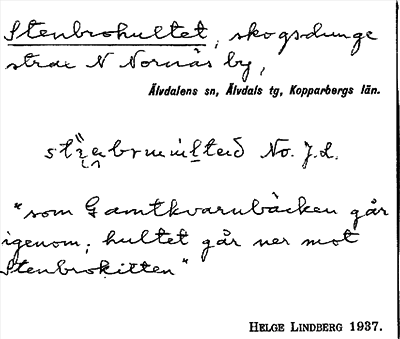 Stenbrohultet, skogsdunge
strax N Nornäs by,
Älvdalens sn, Älvdals tg, Kopparbergs län.
No. J.L.
"som Gamtkvarnbäcken går
igenom; hultet går ner mot
Stenbrokitten"
HELGE LINDBERG 1937.